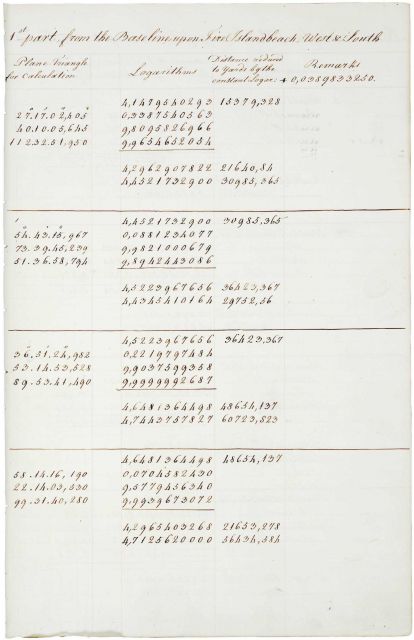 1st part from the Baseline upon Fire Islandbeach, West & South
Plane Triangle for Calculation Logarithms Distance reduced to Yards by the constant Logar: + 0,0389833250. Remarks
4,1479540293 15379,328
27.17.02,405 0,3387540563
40.10.05,645 9,8095826966
112.32.51,950 9,9654652054
4,2962907822 21640,84
4,4521732900 30985,365
4,4521732900 30985,365
54.43.15,967 0,0881234077
73.39.45,239 9,9821000679
51.36.58,794 9,8942443086
4,5223967656 36423,367
4,4345410164 29752,56
4,5223967656 36423,367
36.51.24,982 0,2219797484
53.14.53,528 9,9037599358
89.53.41,490 9,9999992687
4,6481364498 48654,137
4,7443757827 60723,823
4,6481364498 48654,137
58.14.16,190 0,0704582430
22.14.03,530 9,5779456340
99.31.40,280 9,9939673072
4,2965403268 21653,278
4,7125620000 56434,584